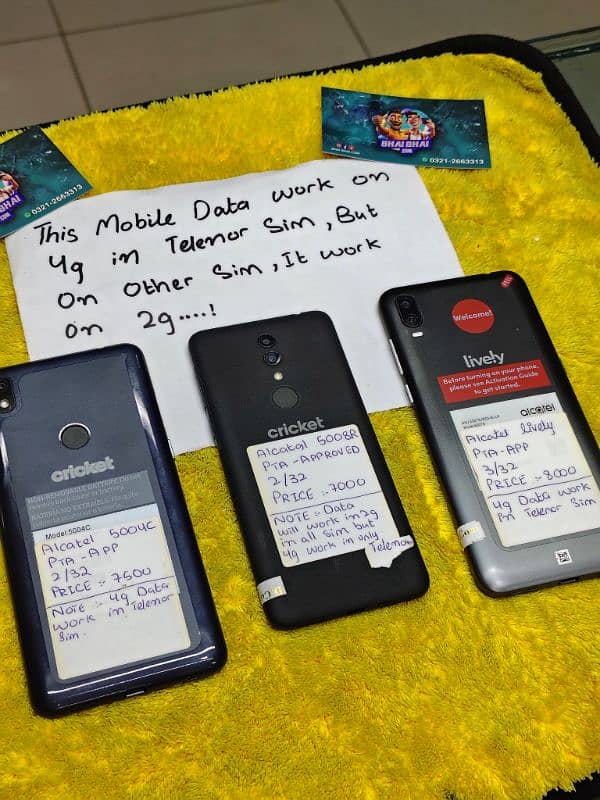 BHAI BHAI
0321-2663313
BHAI
0321-2663313
This Mobile Data work on
4g in Telenor Sim, But
On Other Sim, It work
on 2g....!
cricket
NON-REMOVABLE BATTERY. Do not
Model:5004C
Alcatel 5004C
PTA - APP
2/32
PRICE :- 7500
NOTE :- 4g Data
work in Telenor
Sim.
cricket
Alcatal 5008R
PTA - APPROVED
2/32
PRICE :- 7000
NOTE :- Data
will work in 2g
in all sim but
4g work in only
Telenor
Welcome!
lively
Before turning on your phone,
please see Activation Guide
to get started.
alcatel
Alcatel lively
PTA - APP
3/32
PRICE :- 8000
4g Data work
in Telenor Sim